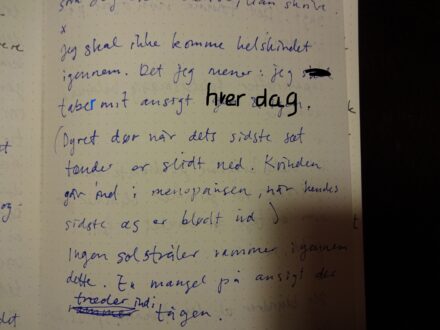 som jeg skrive
x
Jeg skal ikke komme helskindet
igennem. Det jeg mener: jeg
taber mit ansigt hver dag.
(Dyret dør når dets sidste sæt
tænder er slidt ned. Kvinden
går ind i menopausen, når hendes
sidste æg er blødt ud)
Ingen solstråler rammer igennem
dette. En mangel på ansigt der
træder ind i
tågen.